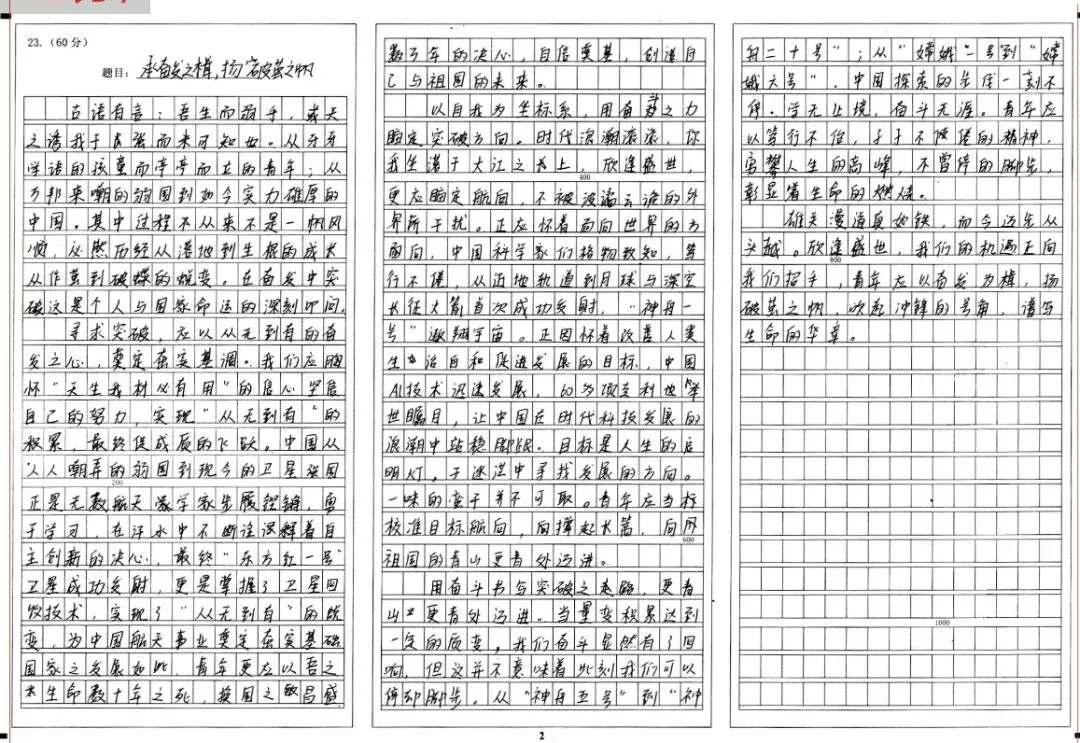 23.（60分）
题目：承奋发之楫，扬破茧之帆
古语有言：吾生而弱乎，或天
之诱我于自强而未可知也。从牙牙
学语的孩童而亭亭而立的青年；从
万邦来嘲的弱国到如今实力雄厚的
中国。其中过程不从来不是一帆风
顺，必然历经从落地到生根的成长
从作茧到破蝶的蜕变。在奋发中突
破这是个人与国家命运的深刻叩问。
寻求突破，应以从无到有的奋
发之心，奠定夯实基调。我们应胸
怀"天生我材必有用"的信心坚信
自己的努力，实现"从无到有"的
积累，最终促成质的飞跃。中国从
人人嘲弄的弱国到现今的卫星强国
200
正是无数航天科学家步履铿锵，勇
于学习，在汗水中不断诠释着自
主创新的决心，最终"东方红一号"
卫星成功发射，更是掌握了卫星回
收技术，实现了"从无到有"的蜕
变，为中国航天事业奠定夯实基础
国家之发展如此，青年更应以吾之
生命数十年之死，换国之昌盛
数万年的决心，自信奠基，创造自
己与祖国的未来。
以自我为坐标系，用奋斗之力
瞄定突破方向。时代浪潮滚滚，你
我坐落于大江之上，欣逢盛世，
400
更应瞄定航向，不被波谲云诡的外
界所干扰。正应怀着面向世界的方
向，中国科学家们格物致知，笃
行不倦，从近地轨道到月球与深空
长征火箭首次成功发射，"神舟一
号"遨翔宇宙。正因怀着改善人类
生活和促进发展的目标，中国
AI技术迅速发展，60多项专利世举
世瞩目，让中国在时代科技发展的
浪潮中站稳脚跟。目标是人生的启
明灯，于迷茫中寻找发展的方向。
一味的蛮干并不可取。青年应当标
校准目标航向，向撑起长篙，向
600
祖国的青山更青处迈进。
用奋斗书写突破之走路，更青
山更青处迈进。当量变积累达到
一定的质变，我们奋斗显然有了回
响，但这并不意味着此刻我们可以
停却脚步。从"神舟五号"到"神
舟二十号"；从"嫦娥一号到"嫦
娥六号"，中国探索的步伐一刻不
停。学无止境，奋斗无涯。青年应
以笃行不怠，孑孑不倦倦的精神，
勇攀人生的高峰，不曾停的脚步，
彰显着生命的燃烧。
雄关漫道真如铁，而今迈步从
头越。欣逢盛世，我们的机遇正向
800
我们招手，青年应以奋发为楫，扬
破茧之帆，吹起冲锋的号角，谱写
生命的华章。
1000
2